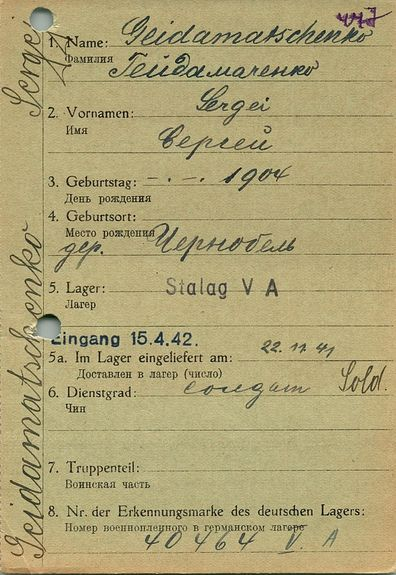 447
1. Name: Geidamatschenko
Фамилия
Гейдамаченко
2. Vornamen: Sergei
Имя
Сергей
3. Geburtstag: -.-. 1904
День рождения
4. Geburtsort:
Место рождения
дер. Чернобель
5. Lager: Stalag V A
Лагер
Eingang 15.4.42.
5a. Im Lager eingeliefert am: 22.11.41
Доставлен в лагер (число)
6. Dienstgrad: солдат Sold.
Чин
7. Truppenteil:
Воинская часть
8. Nr. der Erkennungsmarke des deutschen Lagers:
Номер военнопленного в германском лагере
40464 V. A
Geidamatschenko Sergei